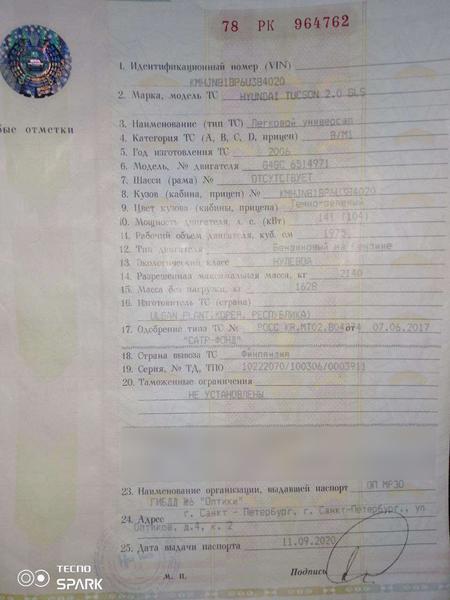 78 РК 964762
1. Идентификационный номер (VIN)
KMHJN81BP6U384020
2. Марка, модель ТС HYUNDAI TUCSON 2.0 GLS
ые отметки
3. Наименование (тип ТС) Легковой универсал
4. Категория ТС (A, B, C, D, прицеп) B/M1
5. Год изготовления ТС 2006
6. Модель, № двигателя G4GC 6514971
7. Шасси (рама) № ОТСУТСТВУЕТ
8. Кузов (кабина, прицеп) № KMHJN81BP6U384020
9. Цвет кузова (кабины, прицепа) Темнозеленый
10. Мощность двигателя, л. с. (кВт) 141 (104)
11. Рабочий объем двигателя, куб. см 1975
12. Тип двигателя Бензиновый на бензине
13. Экологический класс НУЛЕВОЙ
14. Разрешенная максимальная масса, кг 2140
15. Масса без нагрузки, кг 1628
16. Изготовитель ТС (страна)
ULSAN PLANT.КОРЕЯ, РЕСПУБЛИКА)
17. Одобрение типа ТС № РОСС KR.MT02.B04374 от 07.06.2017
"САТР-ФОНД"
18. Страна вывоза ТС Финляндия
19. Серия, № ТД, ТПО 10222070/100306/0003911
20. Таможенные ограничения
НЕ УСТАНОВЛЕНЫ
23. Наименование организации, выдавшей паспорт ОП МРЭО
ГИБДД №6 "Оптики"
24. Адрес г. Санкт - Петербург, г. Санкт-Петербург,, ул
Оптиков, д.4, к. 2
25. Дата выдачи паспорта 11.09.2020
м. п. Подпись
TECNO
SPARK